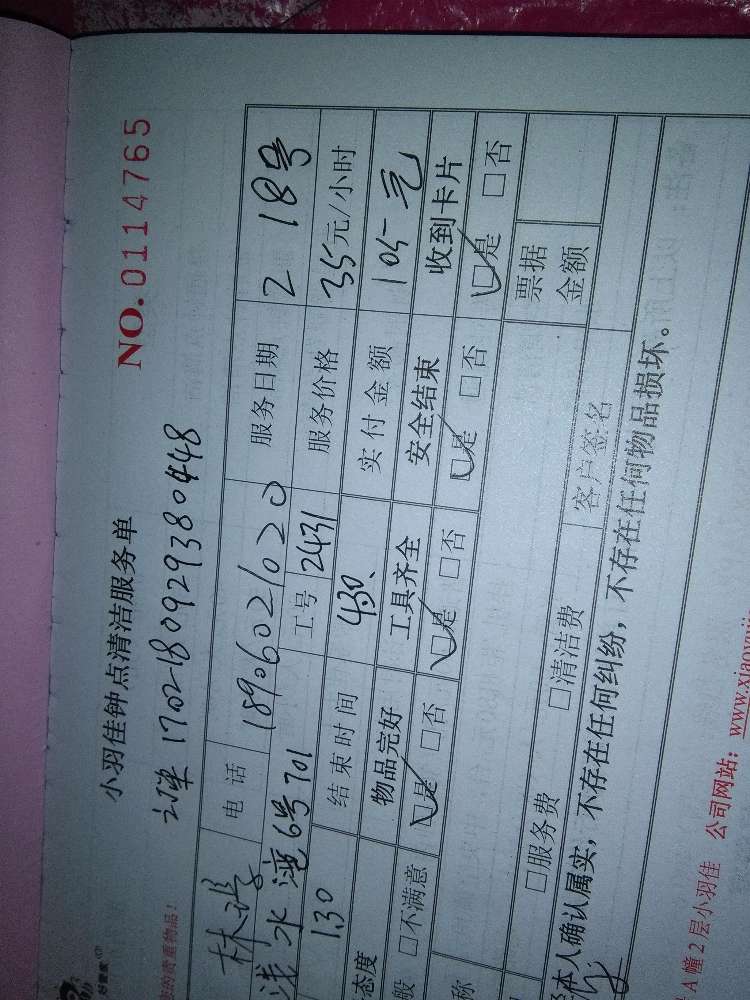 小羽佳钟点清洁服务单
NO.0114765
订单 1702180929380448
您的贵重物品!
电话 18906021020 服务日期 2 18号
浅水湾6号701 工号 2431 服务价格 35元/小时
1.30 结束时间 4.30 实付金额 105元
态度 物品完好 工具齐全 安全结束 收到卡片
般 □不满意 □是 □否 □是 □否 □是 □否 □是 □否
称 票据金额
□服务费 □清洁费 客户签名
本人确认属实，不存在任何纠纷，不存在任何物品损坏。
A幢2层小羽佳 公司网站：www.xiaoyuji